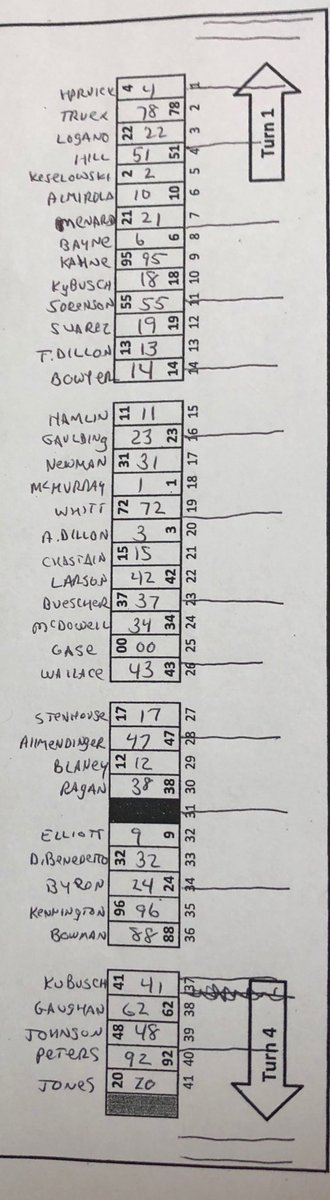 HARVICK 4 4 1
TRUEX 78 78 2
LOGANO 22 22 3
HILL 51 51 4
KESELOWSKI 2 2 5
ALMIROLA 10 10 6
MENARD 21 21 7
BAYNE 6 6 8
KAHNE 95 95 9
KyBUSCH 18 18 10
SORENSON 55 55 11
SUAREZ 19 19 12
T.DILLON 13 13 13
BOWYER 14 14 14
Turn 1
HAMLIN 11 11 15
GAULDING 23 23 16
NEWMAN 31 31 17
McMURRAY 1 1 18
WHITT 72 72 19
A.DILLON 3 3 20
CHASTAIN 15 15 21
LARSON 42 42 22
BUESCHER 37 37 23
McDOWELL 34 34 24
GASE 00 00 25
WALLACE 43 43 26
STENHOUSE 17 17 27
Allmendinger 47 47 28
BLANEY 12 12 29
RAGAN 38 38 30
31
ELLIOTT 9 9 32
DiBENEDETTO 32 32 33
BYRON 24 24 34
KENNINGTON 96 96 35
BOWMAN 88 88 36
KUBUSCH 41 41 37
GAUGHAN 62 62 38
JOHNSON 48 48 39
PETERS 92 92 40
JONES 20 20 41
Turn 4